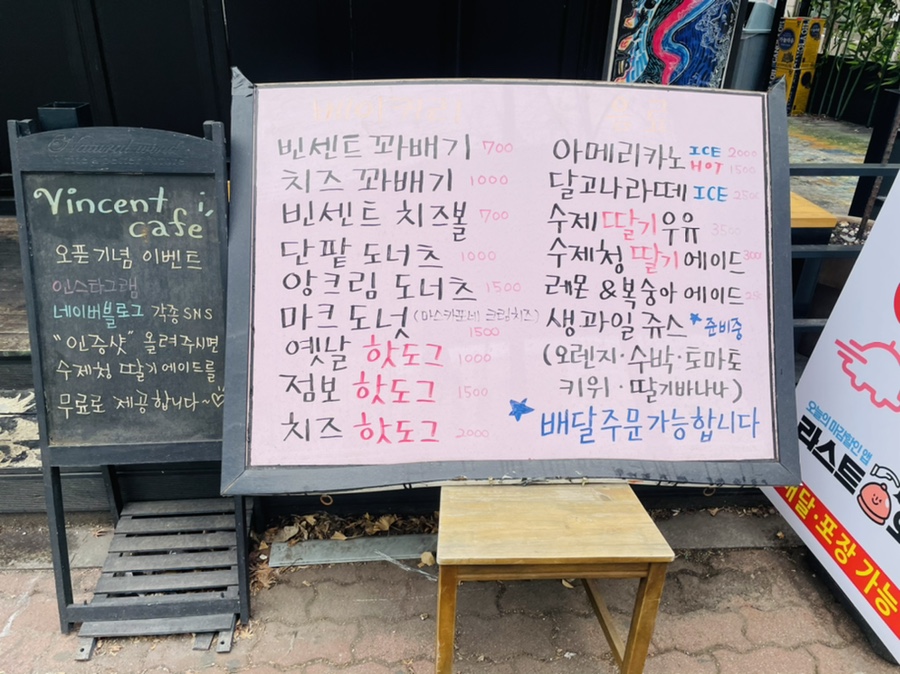 Vincent i,
cafe
오픈기념 이벤트
인스타그램
네이버블로그 각종SNS
"인증샷" 올려주시면
수제청 딸기에이드를
무료로 제공합니다~♡
빈센트 꽈배기 700
치즈 꽈배기 1000
빈센트 치즈볼 700
단팥 도너츠 1000
앙크림 도너츠 1500
마크 도넛 (마스카포네 크림치즈)
1500
옛날 핫도그 1000
점보 핫도그 1500
치즈 핫도그 2000
아메리카노 ICE 2000
HOT 1500
달고나라떼 ICE 2500
수제 딸기우유 3500
수제청 딸기에이드
레몬 & 복숭아 에이드
생과일쥬스 *준비중
(오렌지·수박·토마토
키위·딸기바나나)
★배달주문가능합니다
오늘의 마감할인 앱
라스트
배달·포장 가능